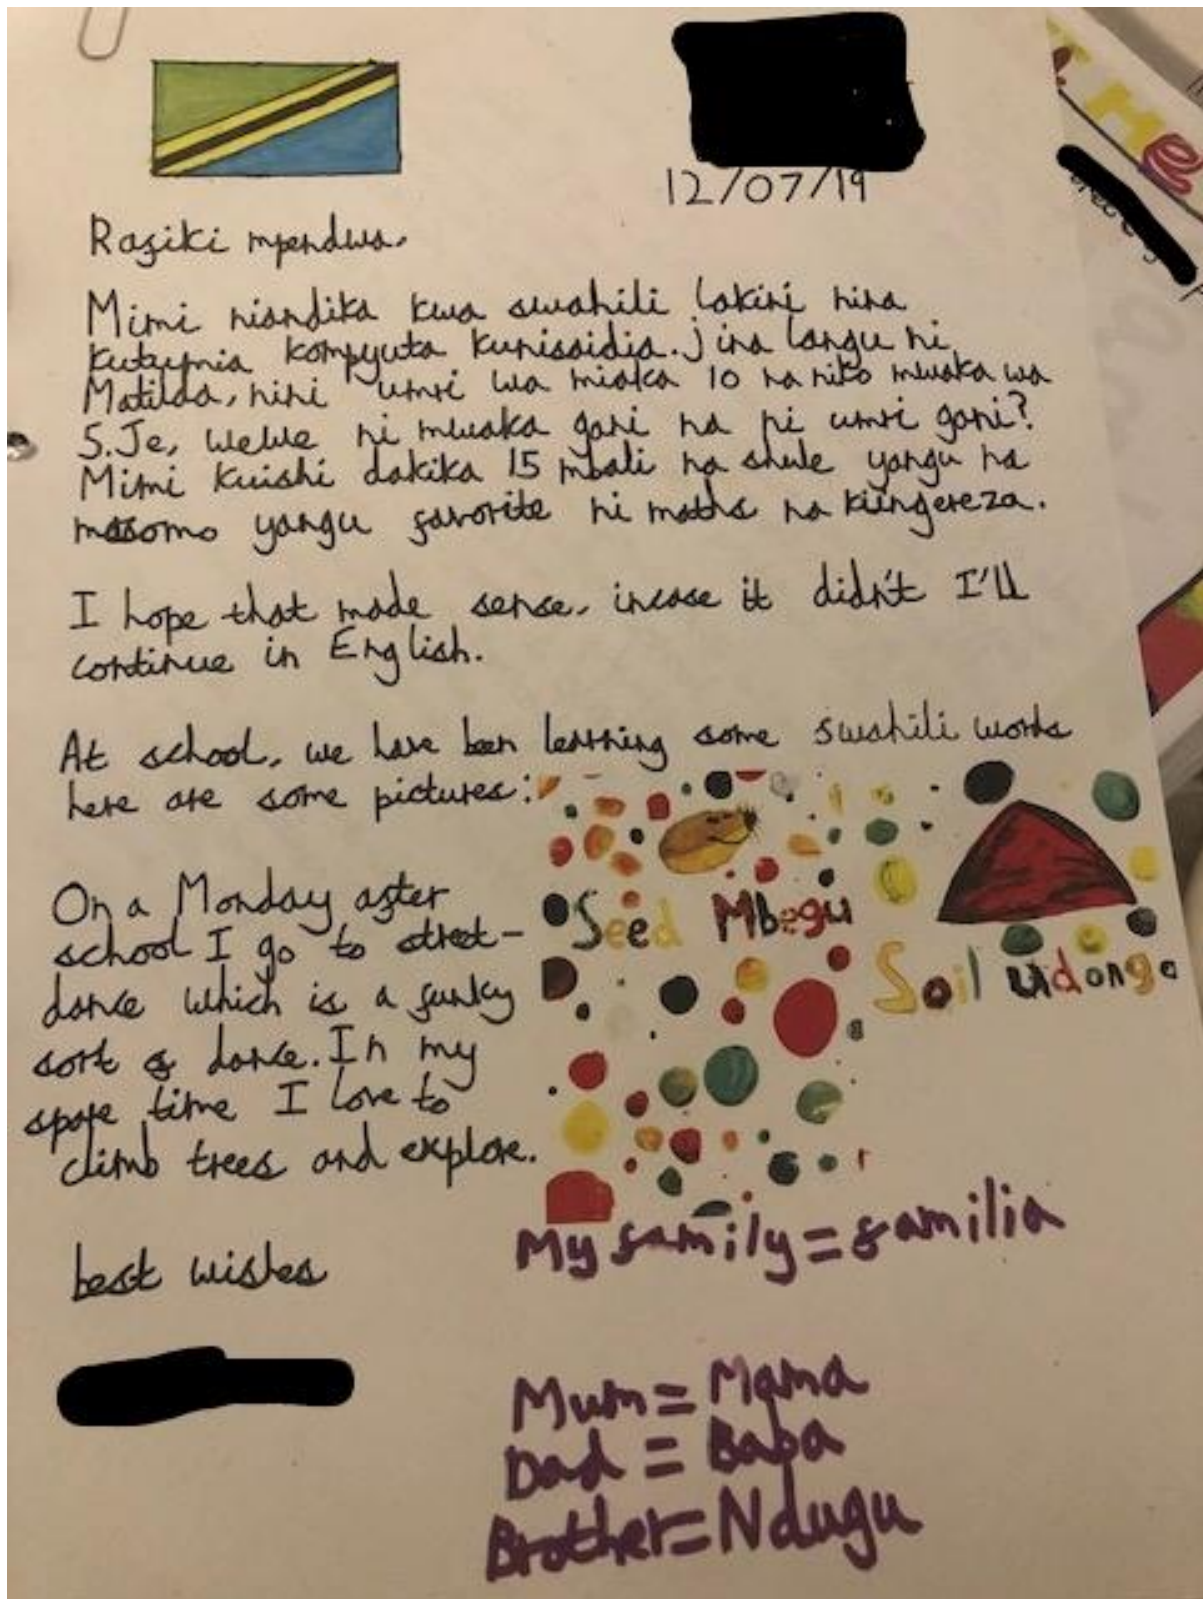 12/07/19
Raziki mpendwa,
Mimi niandika kwa swahili lakini nina
kutumia kompyuta kunisaidia. jina langu ni
Matilda, nini umri wa miaka 10 na niko mwaka wa
5. Je, wewe ni mwaka gani na ni umri gani?
Mimi kuishi dakika 15 mbali na shule yangu na
masomo yangu favorite ni maths na kiingereza.
I hope that made sense, incase it didn't I'll
continue in English.
At school, we have been learning some swahili words
here are some pictures:
Seed Mbegu
Soil udongo
On a Monday after
school I go to street-
dance which is a funky
sort of dance. In my
spare time I love to
climb trees and explore.
best wishes
My family = familia
Mum = Mama
Dad = Baba
Brother = Ndugu
He